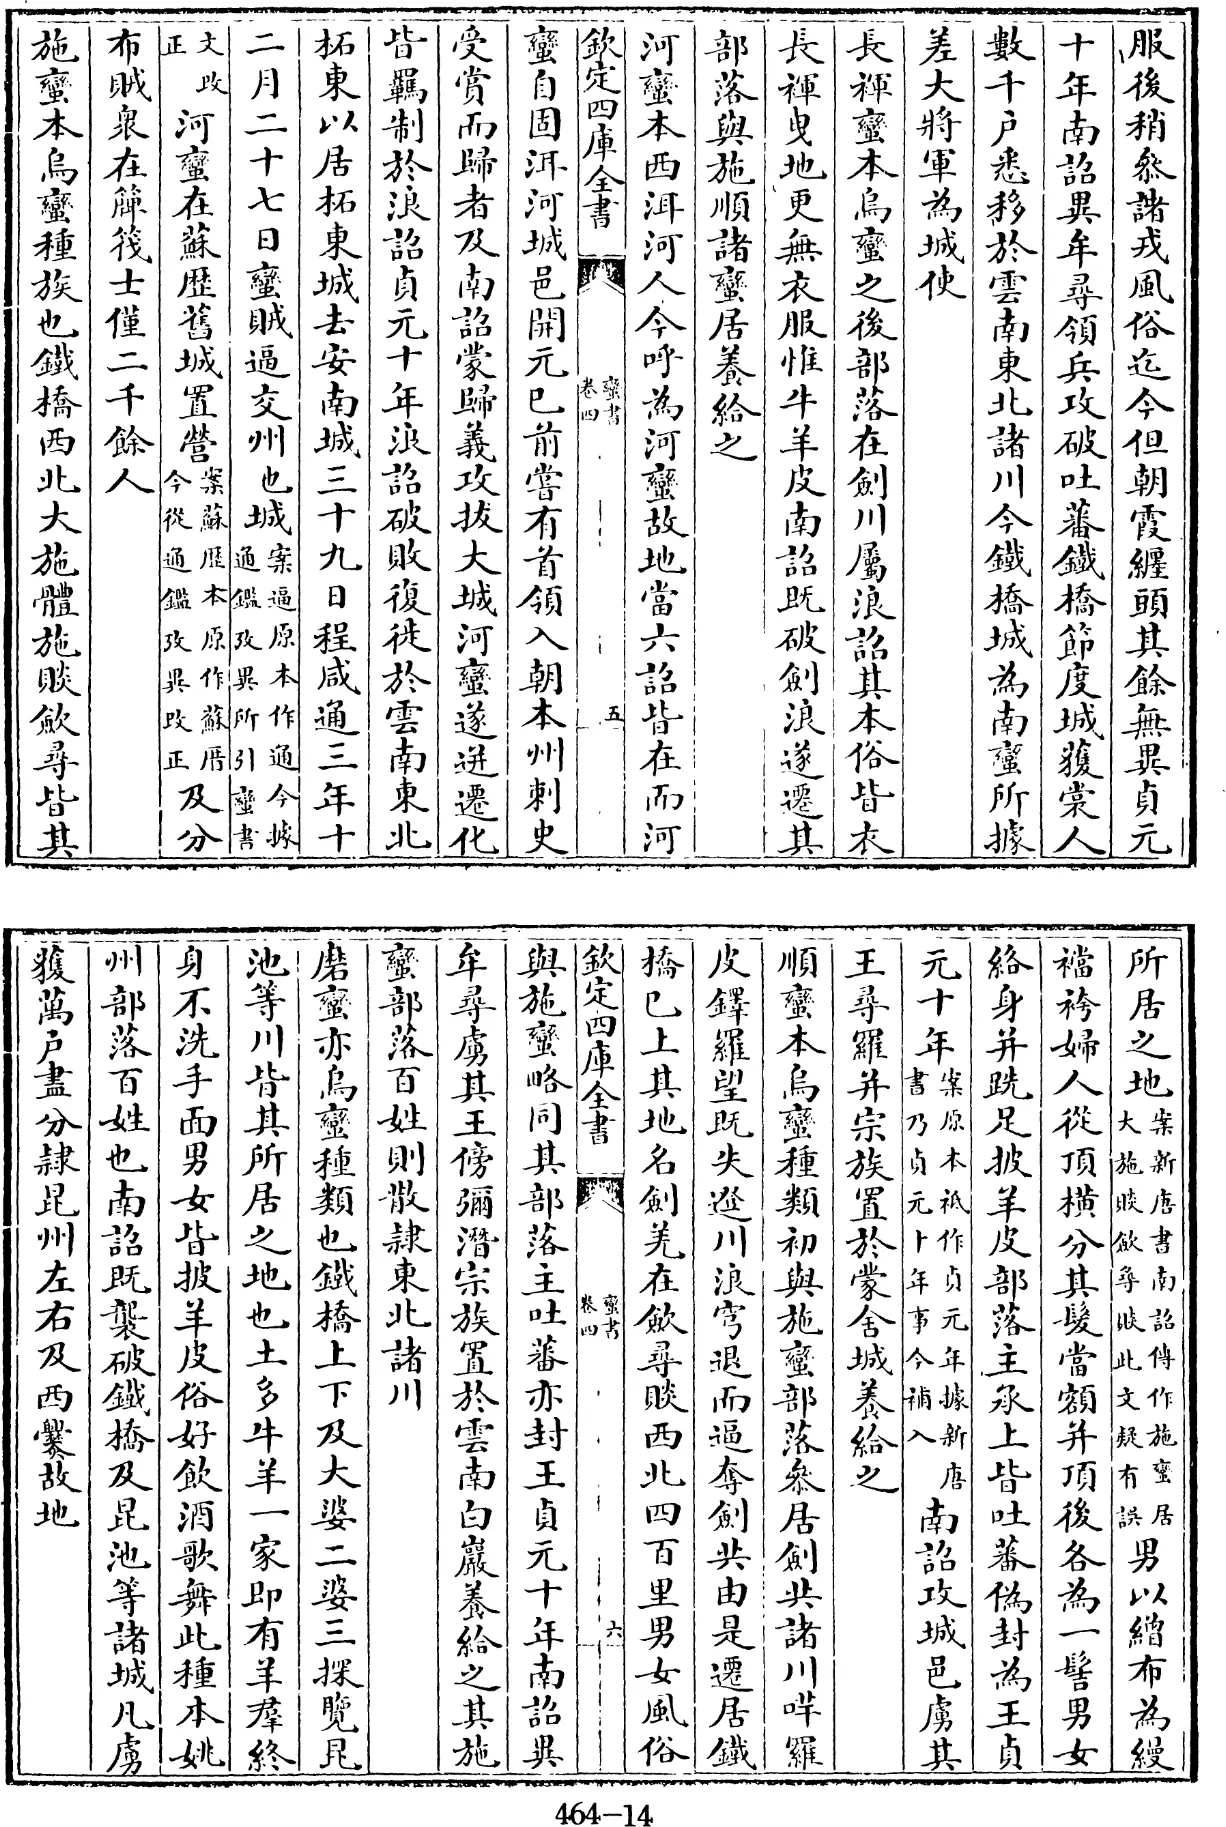 服後稍叅諸戎風俗迄今但朝霞纒頭其餘無異貞元
十年南詔異牟尋領兵攻破吐蕃鐵橋節度城獲裳人
數千戶悉移於雲南東北諸川今鐵橋城為南蠻所據
差大將軍為城使
長褌蠻本烏蠻之後部落在劍川屬浪詔其本俗皆衣
長褌曵地更無衣服惟牛羊皮南詔既破劍浪遂遷其
部落與施順諸蠻居養給之
河蠻本西洱河人今呼為河蠻故地當六詔皆在而河
欽定四庫全書
蠻書
卷四
五
蠻自固洱河城邑開元已前嘗有首領入朝本州刺史
受賞而歸者及南詔蒙歸義攻拔大城河蠻遂迸遷化
皆羈制於浪詔貞元十年浪詔破敗復徙於雲南東北
柘東以居柘東城去安南城三十九日程咸通三年十
二月二十七日蠻賊逼交州也城案逼原本作通今據
通鑑攷異所引蠻書
文改
正河蠻在蘇歷舊城置營案蘇歷本原作蘇厝
今從通鑑攷異改正及分
布賊衆在簰筏士僅二千餘人
施蠻本烏蠻種族也鐵橋西北大施體施賧歛尋皆其
所居之地案新唐書南詔傳作施蠻居
大施賧歛尋賧此文疑有誤男以繒布為縵
襠袴婦人從頂橫分其髮當額并頂後各為一髻男女
終身并跣足披羊皮部落主承上皆吐蕃偽封為王貞
元十年案原本祗作貞元年據新唐
書乃貞元十年事今補入南詔攻城邑虜其
王尋羅并宗族置於蒙舍城養給之
順蠻本烏蠻種類初與施蠻部落叅居劍共諸川咩羅
皮鐸羅望既失邆川浪穹退而逼奪劍共由是遷居鐵
橋已上其地名劍羌在歛尋賧西北四百里男女風俗
欽定四庫全書
蠻書
卷四
六
與施蠻略同其部落主吐蕃亦封王貞元十年南詔異
牟尋虜其王傍彌潛宗族置於雲南白巖養給之其施
蠻部落百姓則散隸東北諸川
磨蠻亦烏蠻種類也鐵橋上下及大婆二婆三探覽昆
池等川皆其所居之地也土多牛羊一家即有羊羣終
身不洗手面男女皆披羊皮俗好飲酒歌舞此種本姚
州部落百姓也南詔既襲破鐵橋及昆池等諸城凡虜
獲萬戶盡分隸昆州左右及西爨故地
464-14